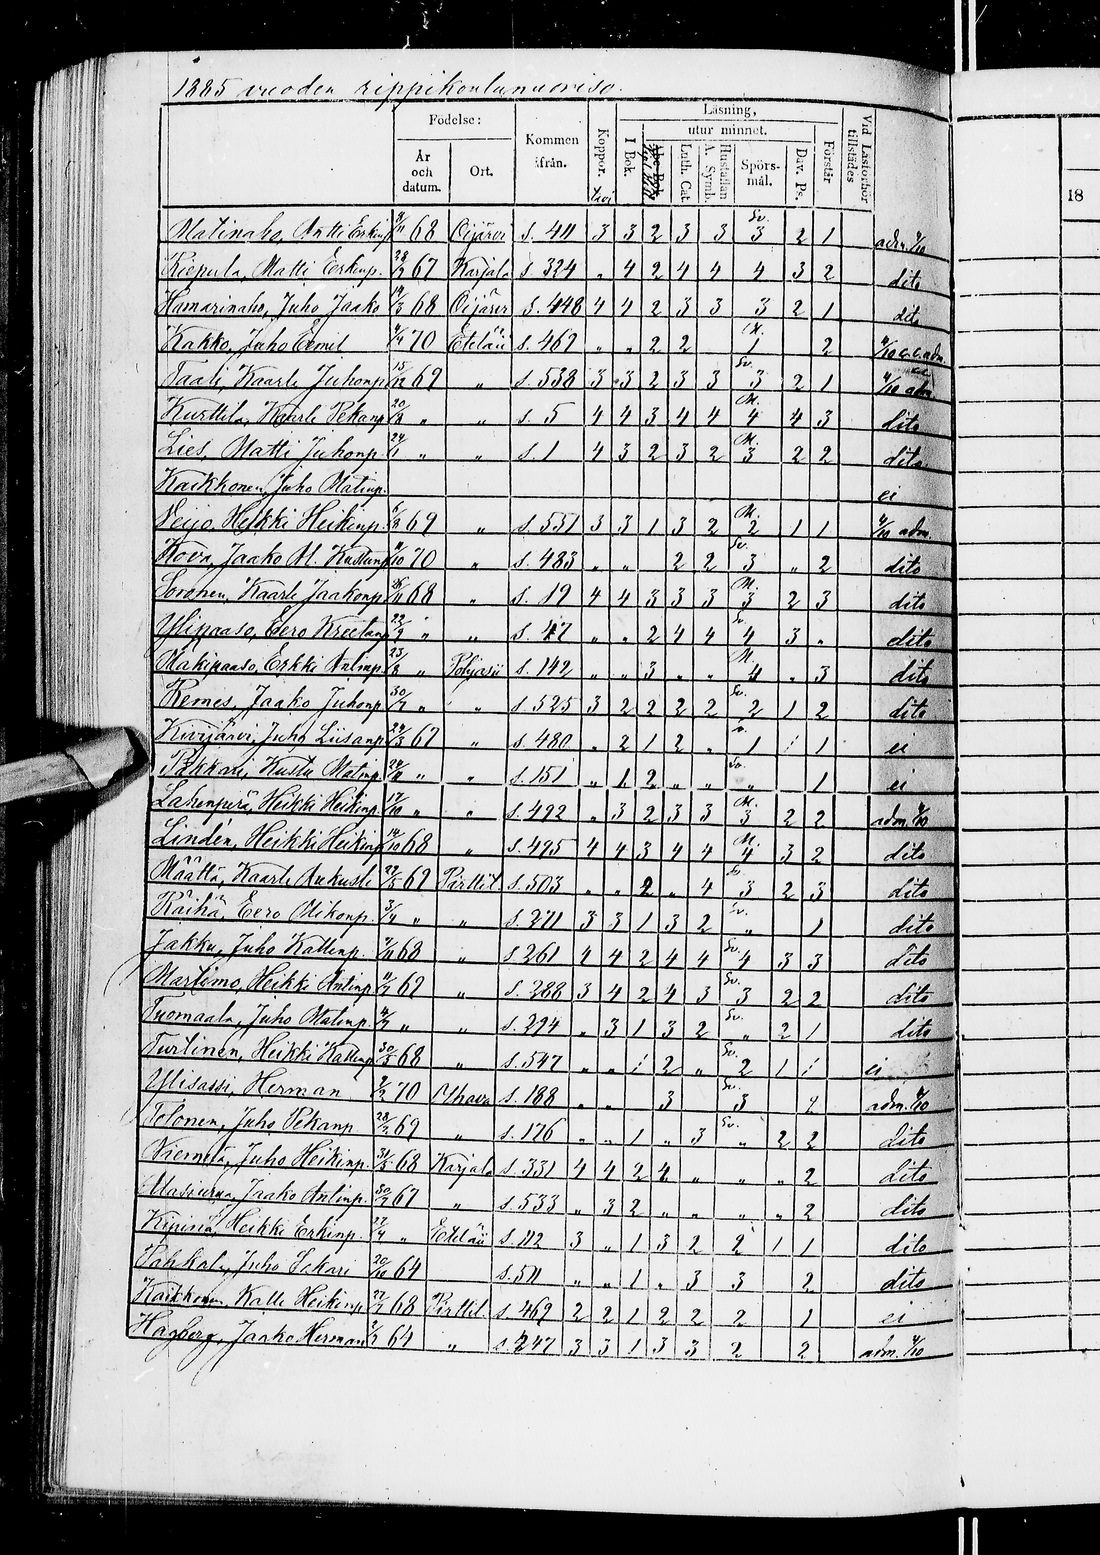 1885 vuoden rippikoulunuoriso.
Födelse: Kommen ifrån. Koppor. Läsning, Vid Läsförhör tillstädes
utur minnet.
År och datum. Ort. I Bok. Luth. Cat. Hustaflan A. Symb. Spörsmål. Dav. Ps. Förstår
18
Matinaho, Antti Erkinp 68 Oijärvi s. 411 3 3 2 3 3 Sv. 3 2 1 adm. 4/10
Kiepula, Matti Erkinp. 28/2 67 Karjala s. 324 „ 4 2 4 4 4 3 2 dito
Hamarinaho, Juho Jaako 14/3 68 Oijärvi s. 448 4 4 2 3 3 3 2 1 dito
Kakko, Juho Eemil 70 Eteläii s. 462 „ „ 2 2 M. 1 2 4/10 c.c. adm.
Taali, Kaarle Juhonp 15/12 69 „ s. 538 3 3 2 3 3 Sv. 3 2 1 4/10 adm.
Kurttila, Kaarle Pekanp „ „ s. 5 4 4 3 4 4 M. 4 4 3 dito
Lies, Matti Juhonp 24/1 „ „ s. 1 4 3 2 3 2 M. 3 2 2 dito
Kaikkonen, Juho Matinp. ei
Veijo, Heikki Heikinp. 69 „ s. 531 3 3 1 3 2 M. 2 1 1 4/10 adm.
Kova, Jaako M. Kustinp 70 „ s. 483 „ „ 2 2 Sv. 3 „ 2 dito
Soronen, Kaarle Jaakonp 68 „ s. 19 4 4 3 3 3 M. 3 2 3 dito
Ylipaaso, Eero Kreetanp 22/2 „ „ s. 47 „ „ 2 4 4 4 3 „ dito
Hakipaaso, Erkki Antinp. 23/8 „ Pohjasii s. 142 „ „ 3 „ „ M. 4 „ 3 dito
Remes, Jaako Juhonp 30/7 „ „ s. 525 3 2 2 2 2 Sv. 2 1 2 dito
Kurjärvi, Juho Liisanp 24/3 67 „ s. 480 „ 2 1 2 „ 1 1 1 ei
Pikkari, Kustu Matinp „ „ s. 151 „ 1 2 „ „ Sv. „ 1 ei
Lakenperä, Heikki Heikinp. 17/10 „ „ s. 492 „ 3 2 3 3 M. 3 2 2 adm. 4/10
Lindén, Heikki Heikinp 14/10 68 „ s. 495 4 4 3 4 4 M. 4 3 2 dito
Määttä, Kaarle Aukusti 22/5 69 Pirttit s. 503 „ „ 2 „ 4 Sv. 3 2 3 dito
Räihä, Eero Olikonp. 3/4 „ „ s. 271 3 3 1 3 2 Sv. „ 1 dito
Jakku, Juho Kallenp. 68 „ s. 261 4 4 2 4 4 Sv. 4 3 3 dito
Martimo, Heikki Antinp 69 „ s. 288 3 4 2 4 3 Sv. 3 2 2 dito
Tuomaala, Juho Matinp. „ „ s. 294 „ 3 1 3 2 Sv. „ 2 1 dito
Turtinen, Heikki Kallenp 30/5 68 „ s. 547 „ „ 1 2 „ Sv. 2 1 1 ei
Ylisassi, Herman 70 s. 188 „ „ 3 Sv. 3 2 adm. 4/10
Tolonen, Juho Pekanp 28/2 69 „ s. 176 „ „ 1 „ 3 Sv. „ 2 2 dito
Niemelä, Juho Heikinp. 31/5 68 Karjala s. 331 4 4 2 4 „ „ „ 2 dito
Jaako Antinp. 67 „ s. 533 „ 3 2 „ „ „ „ 2 dito
Kipinä, Heikki Erkinp. 27/4 „ Eteläii s. 112 3 „ 1 3 2 2 1 1 dito
Juho Sakari 20/10 64 s. 511 „ „ 1 „ 3 3 2 dito
Kaikkonen, Kalle Heikinp 68 Pirttit s. 469 2 2 1 2 2 2 1 ei
Hagberg, Jaako Herman 64 „ s. 247 3 3 1 3 3 2 2 adm. 4/10